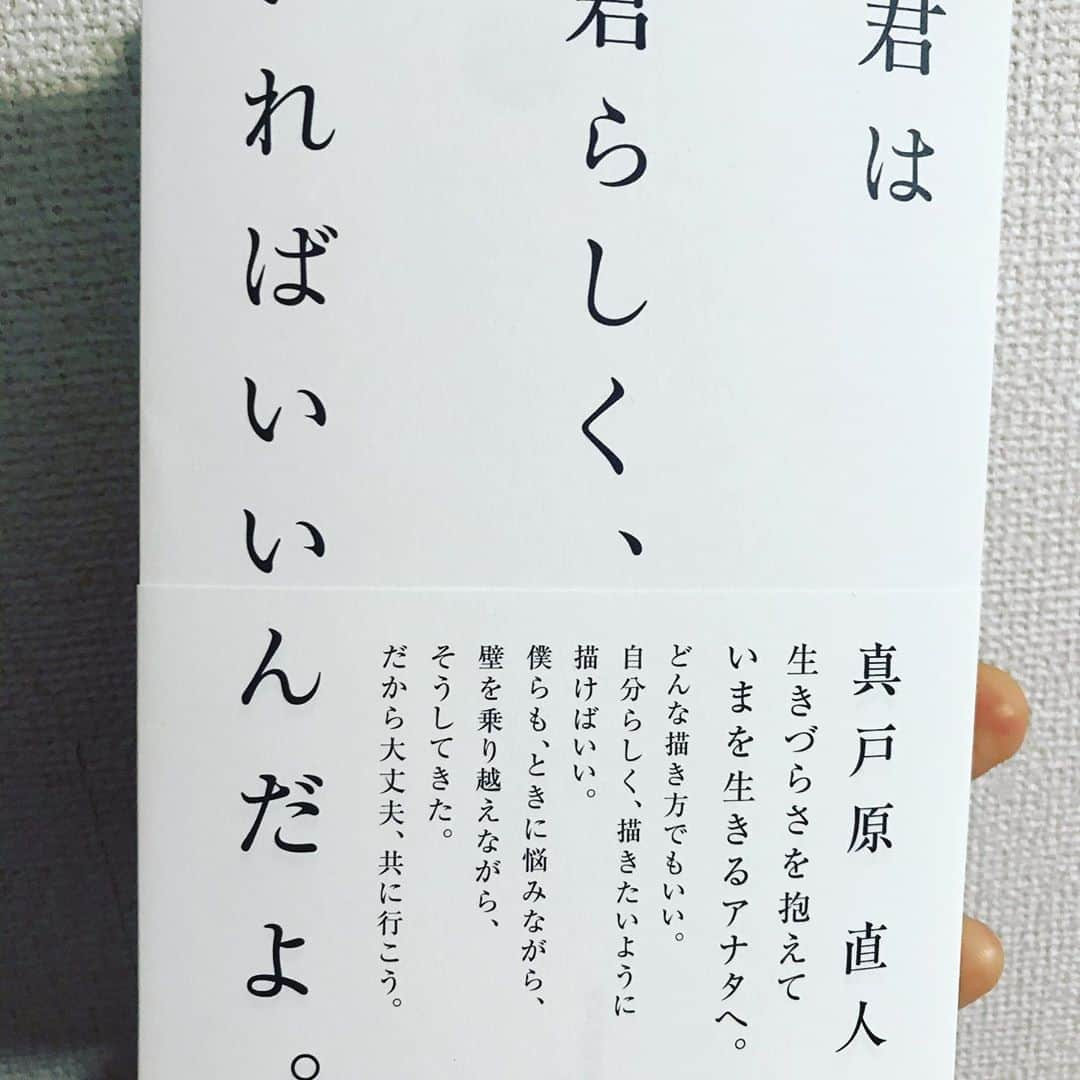 君は
君らしく、
ればいいんだよ。
真戸原 直人
生きづらさを抱えて
いまを生きるアナタへ。
どんな描き方でもいい。
自分らしく、描きたいように
描けばいい。
僕らも、ときに悩みながら、
壁を乗り越えながら、
そうしてきた。
だから大丈夫、共に行こう。